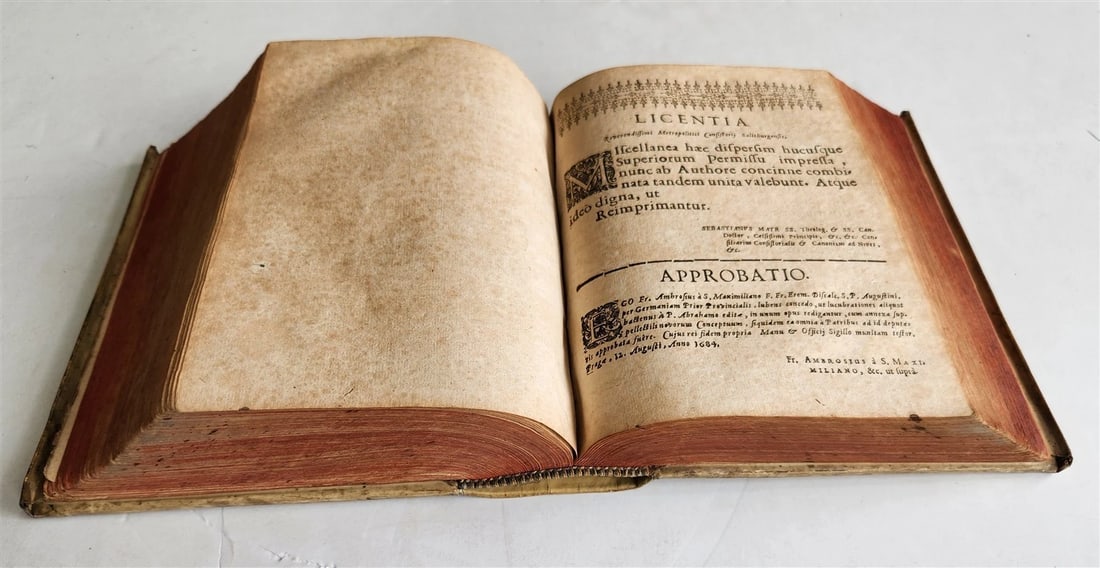 LICENTIA
Reverendissimi Metropolitici Consistorij Salisburgensis.
MIscellanea hæc dispersim hucusque
Superiorum Permissu impressa,
nunc ab Authore concinne combi-
nata tandem unita valebunt. Atque
ideò digna, ut
Reimprimantur.
SEBASTIANUS MAYR SS. Theolog. & SS. Can.
Doctor, Celsissimi Principis, &c. &c. Con-
siliarius Consistorialis & Canonicus ad Nives,
&c.
APPROBATIO.
EGO Fr. Ambrosius à S. Maximiliano F. Fr. Erem. Discalc. S. P. Augustini,
per Germaniam Prior Provincialis, lubens concedo, ut lucubrationes aliquot
hactenus à P. Abrahamo editæ, in unum opus redigantur, cum annexa sup-
pellectili novorum Conceptuum, siquidem ea omnia à Patribus ad id deputa-
tis approbata fuere. Cujus rei fidem propria Manu & Officij Sigillo munitam testor.
Pragæ, 12. Augusti, Anno 1684.
Fr. AMBROSIUS à S. MAXI-
MILIANO, &c. ut suprà.